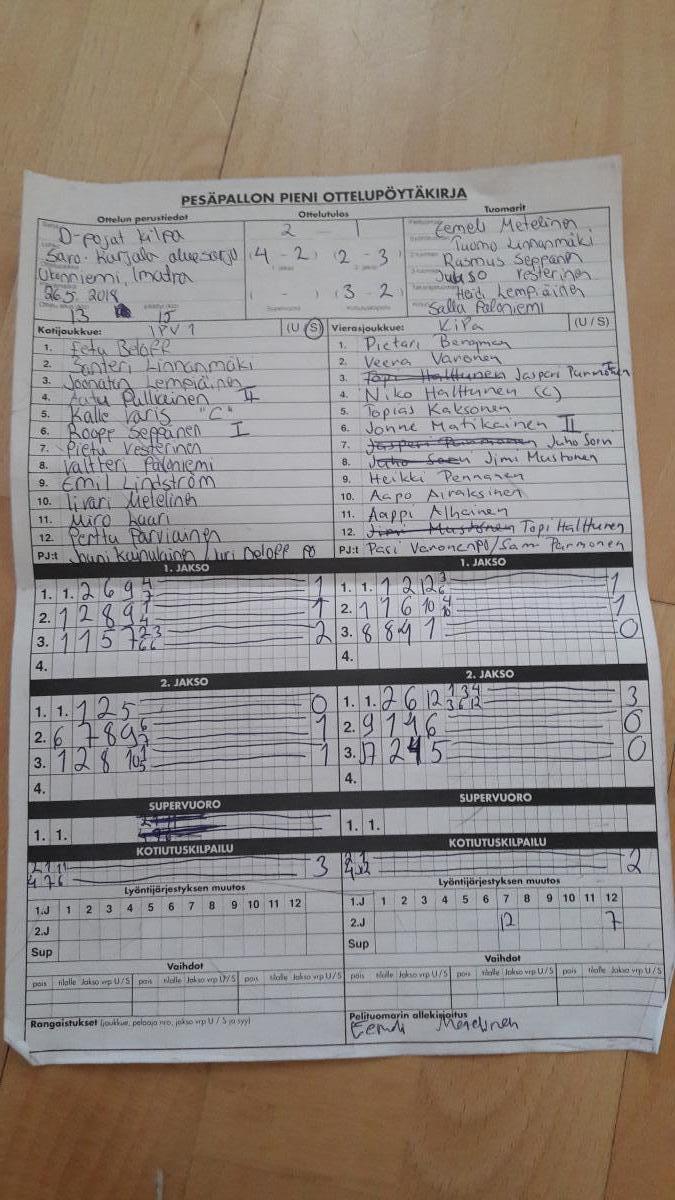 PESÄPALLON PIENI OTTELUPÖYTÄKIRJA
Ottelun perustiedot Ottelutulos Tuomarit
D-pojat kilpa 2 - 1 Eemeli Metelinen
Tuomo Linnanmäki
Karjala aluesarja (4 - 2) (2 - 3) Rasmus Seppänen
Ukonniemi, Imatra Vesterinen
26.5. 2018 ( - ) (3 - 2) Heidi Lempiäinen
13 15 Salla Paloniemi
Kotijoukkue: IPV 1 (U/S) Vierasjoukkue: KiPa (U/S)
1. Eetu Beloff 1. Pietari Bergman
2. Santeri Linnanmäki 2. Veera Varonen
3. Joonatan Lempiäinen 3. Topi Halttunen Jasperi Parmonen
4. Aatu Pulkkinen II 4. Niko Halttunen (C)
5. Kalle Varis "C" 5. Topias Kaksonen
6. Roope Seppänen I 6. Jonne Matikainen II
7. Pietu Vesterinen 7. Jasperi Parmonen Juho Sorn
8. Valtteri Paloniemi 8. Juho Sorn Jimi Mustonen
9. Emil Lindström 9. Heikki Pennanen
10. Iivari Metelinen 10. Aapo Airaksinen
11. Miro Laari 11. Aappi Alhainen
12. Perttu Parviainen 12. Jimi Mustonen Topi Halttunen
PJ:t Jouni Kainulainen / Juri Beloff PÖ PJ:t Pasi Varonen PÖ / Sami Parmonen
1. JAKSO 1. JAKSO
1. 1. 2 6 9 4 7 1 1. 1. 1 2 12 3 6 1
2. 1 2 8 9 1 4 1 2. 1 1 6 10 4 10 1
3. 1 1 5 7 2 3 6 6 2 3. 8 8 9 1 0
4. 4.
2. JAKSO 2. JAKSO
1. 1. 1 2 5 0 1. 1. 2 6 12 1 3 4 3 6 12 3
2. 6 7 8 9 6 7 1 2. 9 1 4 6 0
3. 1 2 8 10 1 5 1 3. 2 4 5 0
4. 4.
SUPERVUORO SUPERVUORO
1. 1. 1. 1.
KOTIUTUSKILPAILU KOTIUTUSKILPAILU
2 1 11 4 7 6 3 2
Lyöntijärjestyksen muutos Lyöntijärjestyksen muutos
1.J 1 2 3 4 5 6 7 8 9 10 11 12 1.J 1 2 3 4 5 6 7 8 9 10 11 12
2.J 2.J 12 7
Sup Sup
Vaihdot Vaihdot
pois tilalle Jakso vrp U/S pois tilalle Jakso vrp U/S pois tilalle Jakso vrp U/S pois tilalle Jakso vrp U/S pois tilalle Jakso vrp U/S pois tilalle Jakso vrp U/S
Rangaistukset (joukkue, pelaaja nro, jakso vrp U / S ja syy) Pelituomarin allekirjoitus
Eemeli Metelinen